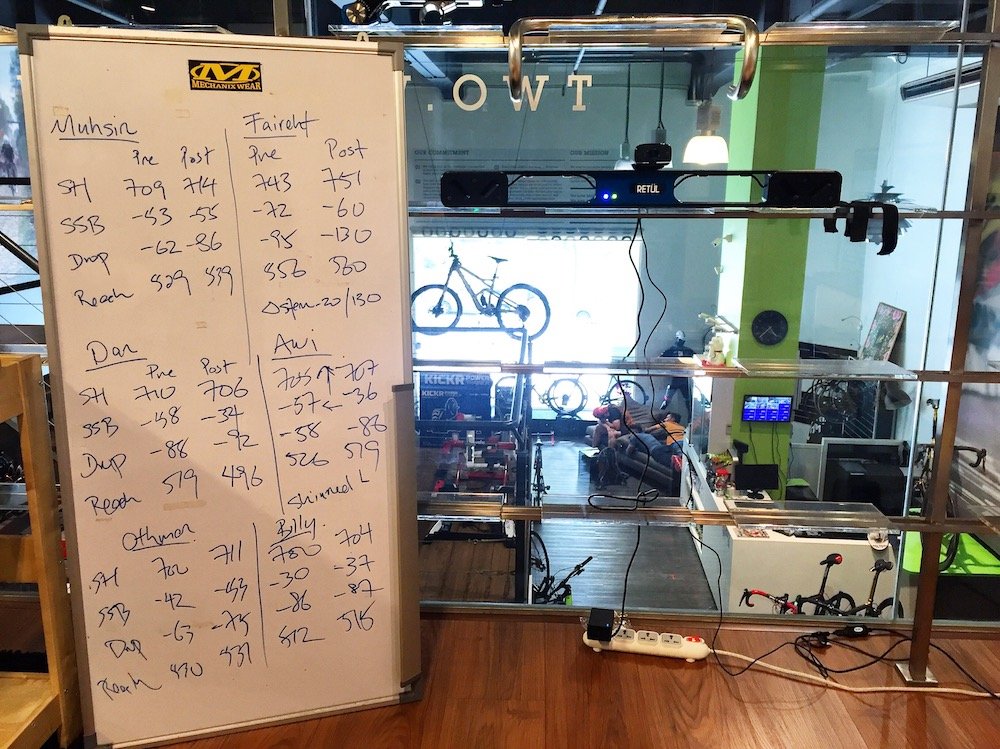 MECHANIX WEAR
Muhsin
Pre Post
SH 709 714
SSB -53 -55
Drop -62 -86
Reach 529 539
Pre Post
743 751
-72 -60
-95 -130
556 560
Δstem-20/130
Dan
Pre Post
SH 710 706
SSB -58 -34
Drop -88 -92
Reach 519 496
Awi
705 ↑ 707
-57 ← -36
-58 -86
526 519
Shimmed L
Othman
SH 702 711
SSB -42 -53
Drop -63 -75
Reach 531
Billy
704
-30 -37
-86 -87
512 515
.OWT
RETÜL
KICKR
KICKR